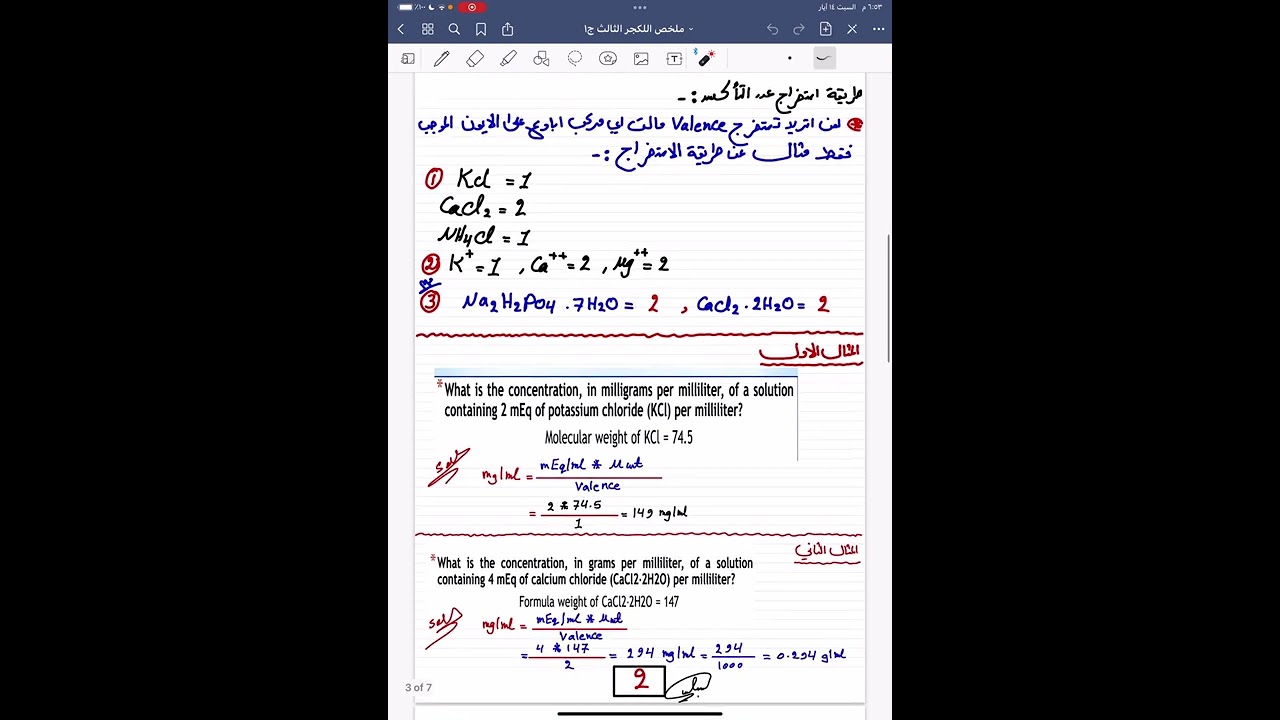 ٦:٥٣ م السبت ١٤ أيار
٪١٠٠
ملخص اللكجر الثالث ج١
طريقة استخراج عدد التأكسد :-
لمن اتريد تستخرج Valence مالت اي مركب اباوع على الايون الموجب
فقط مثال عن طريقة الاستخراج :-
① KCl = 1
CaCl2 = 2
NH4Cl = 1
② K+ = 1 , Ca++ = 2 , Mg++ = 2
③ Na2H2PO4 . 7H2O = 2 , CaCl2 . 2H2O = 2
المثال الاول
*What is the concentration, in milligrams per milliliter, of a solution
containing 2 mEq of potassium chloride (KCl) per milliliter?
Molecular weight of KCl = 74.5
Sol/ mg/ml = mEq/ml * Mwt / Valence
= 2 * 74.5 / 1 = 149 mg/ml
المثال الثاني
*What is the concentration, in grams per milliliter, of a solution
containing 4 mEq of calcium chloride (CaCl2·2H2O) per milliliter?
Formula weight of CaCl2·2H2O = 147
Sol/ mg/ml = mEq/ml * Mwt / Valence
= 4 * 147 / 2 = 294 mg/ml = 294 / 1000 = 0.294 g/ml
2
3 of 7